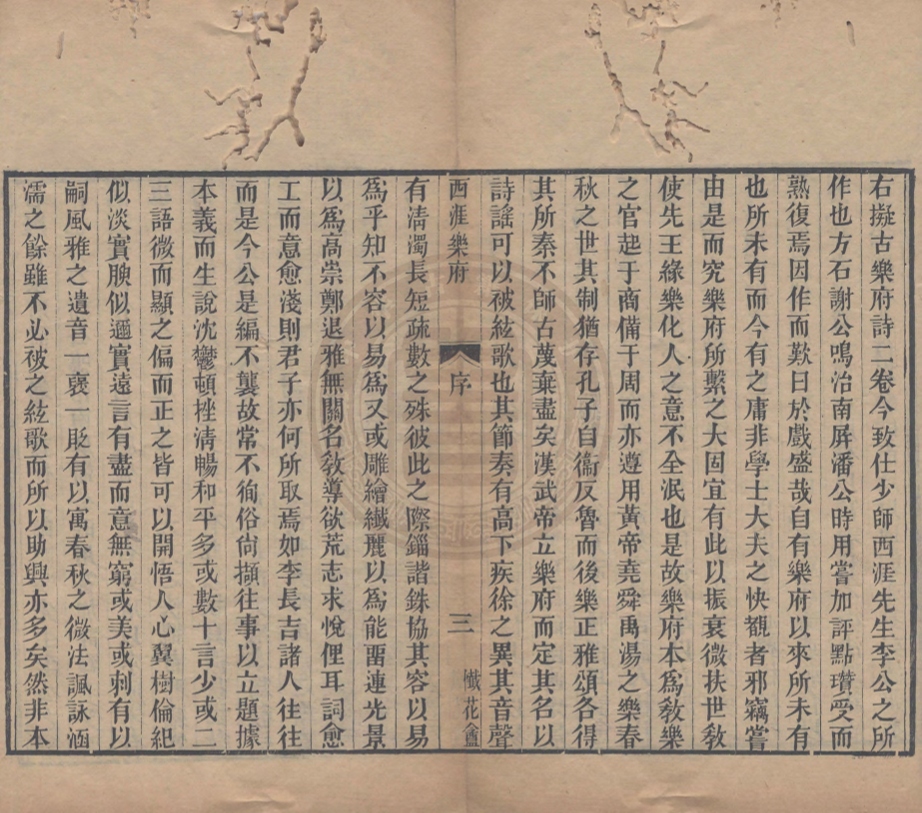 右擬古樂府詩二卷今致仕少師西涯先生李公之所
作也方石謝公鳴治南屏潘公時用嘗加評點瓚受而
熟復焉因作而歎曰於戲盛哉自有樂府以來所未有
也所未有而今有之庸非學士大夫之快覩者邪竊嘗
由是而究樂府所繫之大固宜有此以振衰微扶世敎
使先王緣樂化人之意不全泯也是故樂府本爲敎樂
之官起于商備于周而亦遵用黃帝堯舜禹湯之樂春
秋之世其制猶存孔子自衞反魯而後樂正雅頌各得
其所秦不師古蔑棄盡矣漢武帝立樂府而定其名以
詩謠可以被絃歌也其節奏有高下疾徐之異其音聲
西涯樂府
序
三
懺花盦
有淸濁長短疏數之殊彼此之際錙諧銖協其容以易
爲乎知不容以易爲又或雕繪纖麗以爲能畱連光景
以爲高崇鄭退雅無關名敎導欲荒志求悅俚耳詞愈
工而意愈淺則君子亦何所取焉如李長吉諸人往往
而是今公是編不襲故常不徇俗尙擷往事以立題據
本義而生說沈鬱頓挫淸暢和平多或數十言少或二
三語微而顯之偏而正之皆可以開悟人心翼樹倫紀
似淡實腴似邇實遠言有盡而意無窮或美或刺有以
嗣風雅之遺音一襃一貶有以寓春秋之微法諷詠涵
濡之餘雖不必被之絃歌而所以助興亦多矣然非本